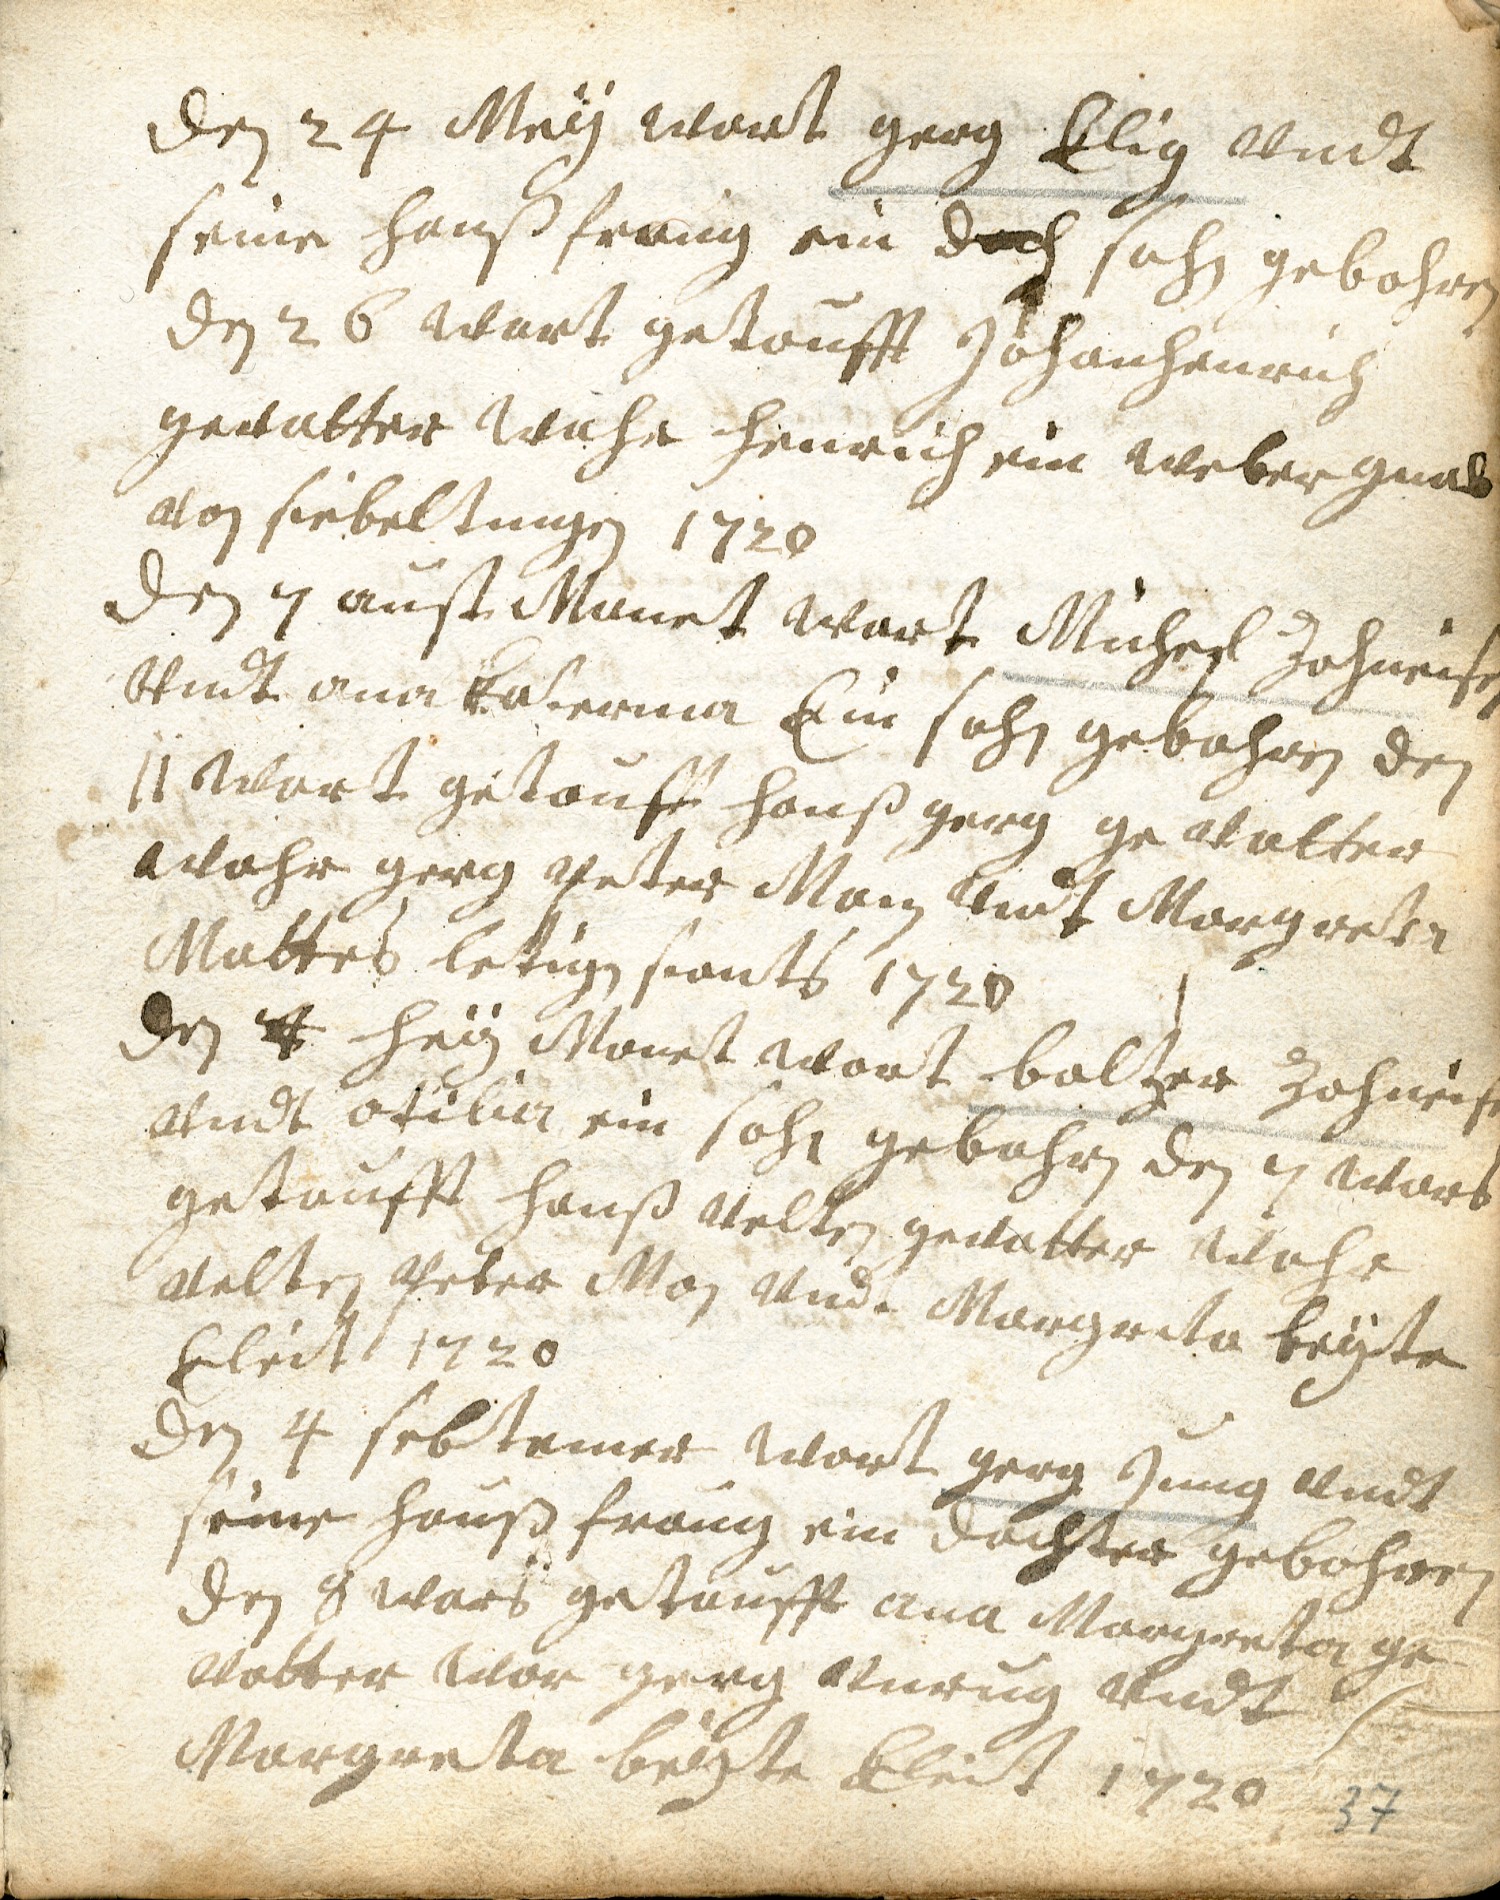 den 24 Meÿ wart gerg Elig undt
seine haußfraug ein doch sohn gebohren
den 26 wart getaufft Johanhenrich
gevatter wahr henrich ein weber gnab
von siebeltingen 1720
den 7 aust Monet wart Michel Zohneisen
undt ana Katerina Ein sohn gebohren den
11 wart getaufft hanß gerg ge vatter
wahr gerg peter Man undt Margreta
Mattes letigen stants 1720
den 4 heÿ Monet wart baltzer Zohneise
undt otilia ein sohn gebohrn den 7 wart
getaufft hanß velten gevatter wahr
velten peter Man und Margreta beÿte
Eleit 1720
den 4 sebtemer wart gerg Jung undt
seine haußfraug ein dochter gebohren
den 8 wart getaufft ana Margreta ge
vatter war gerg unrug undt
Margreta beÿte Eleit 1720
37